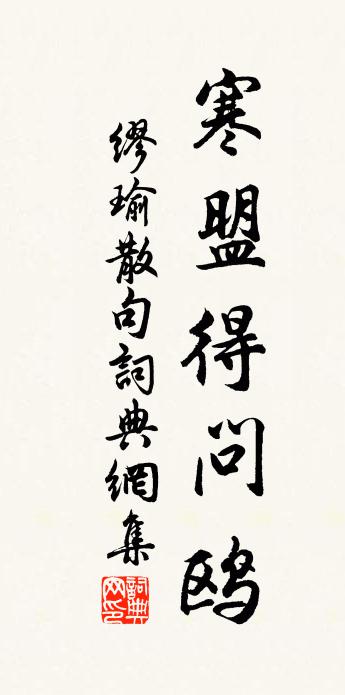 寒盟得問鸥
繆瑜散句詞典網集
詞典网印